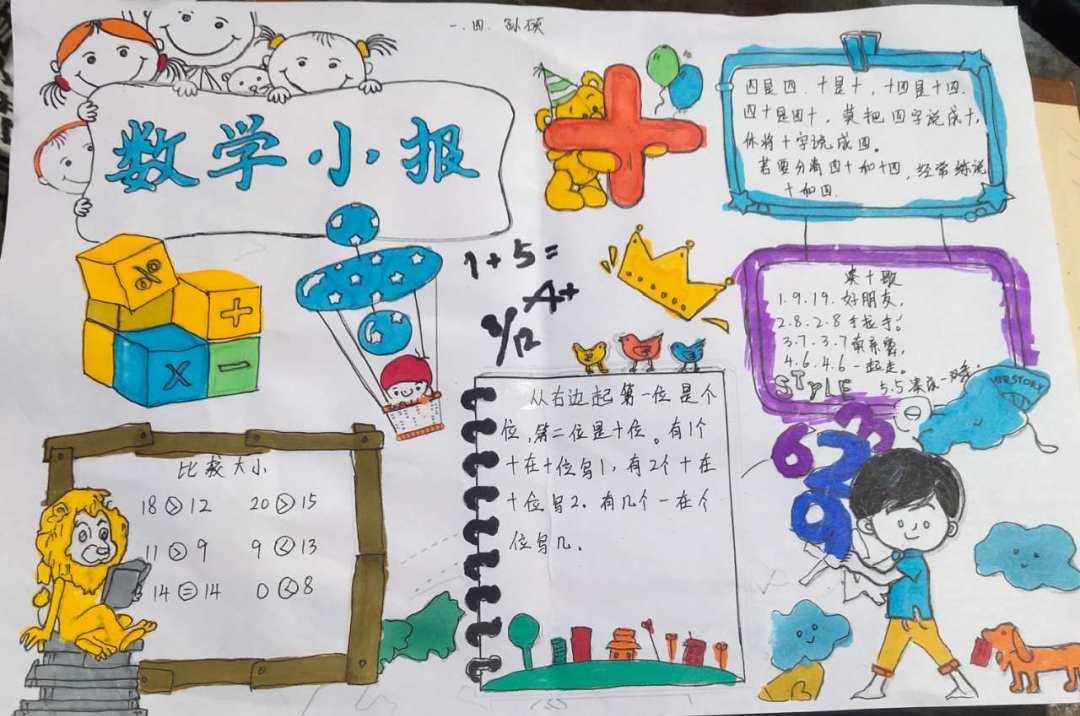 一.四. 孙硕
数学小报
四是四.十是十,十四是十四.
四十是四十,莫把四字说成十,
休将十字说成四。
若要分清四十和十四,经常练说
十和四.
%
+
×
-
6
1+5=
A+
凑十歌
1.9.1.9.好朋友,
2.8.2.8手拉手;
3.7.3.7
4.6.4.6一起走。
5.5
STYLE
从右边起第一位是个
位,第二位是十位。有1个
十在十位写1,有2个十在
十位写2.有几个一在个
位写几.
比较大小
18>12 20>15
11>9 9<13
14=14 0<8
6 2 3
9